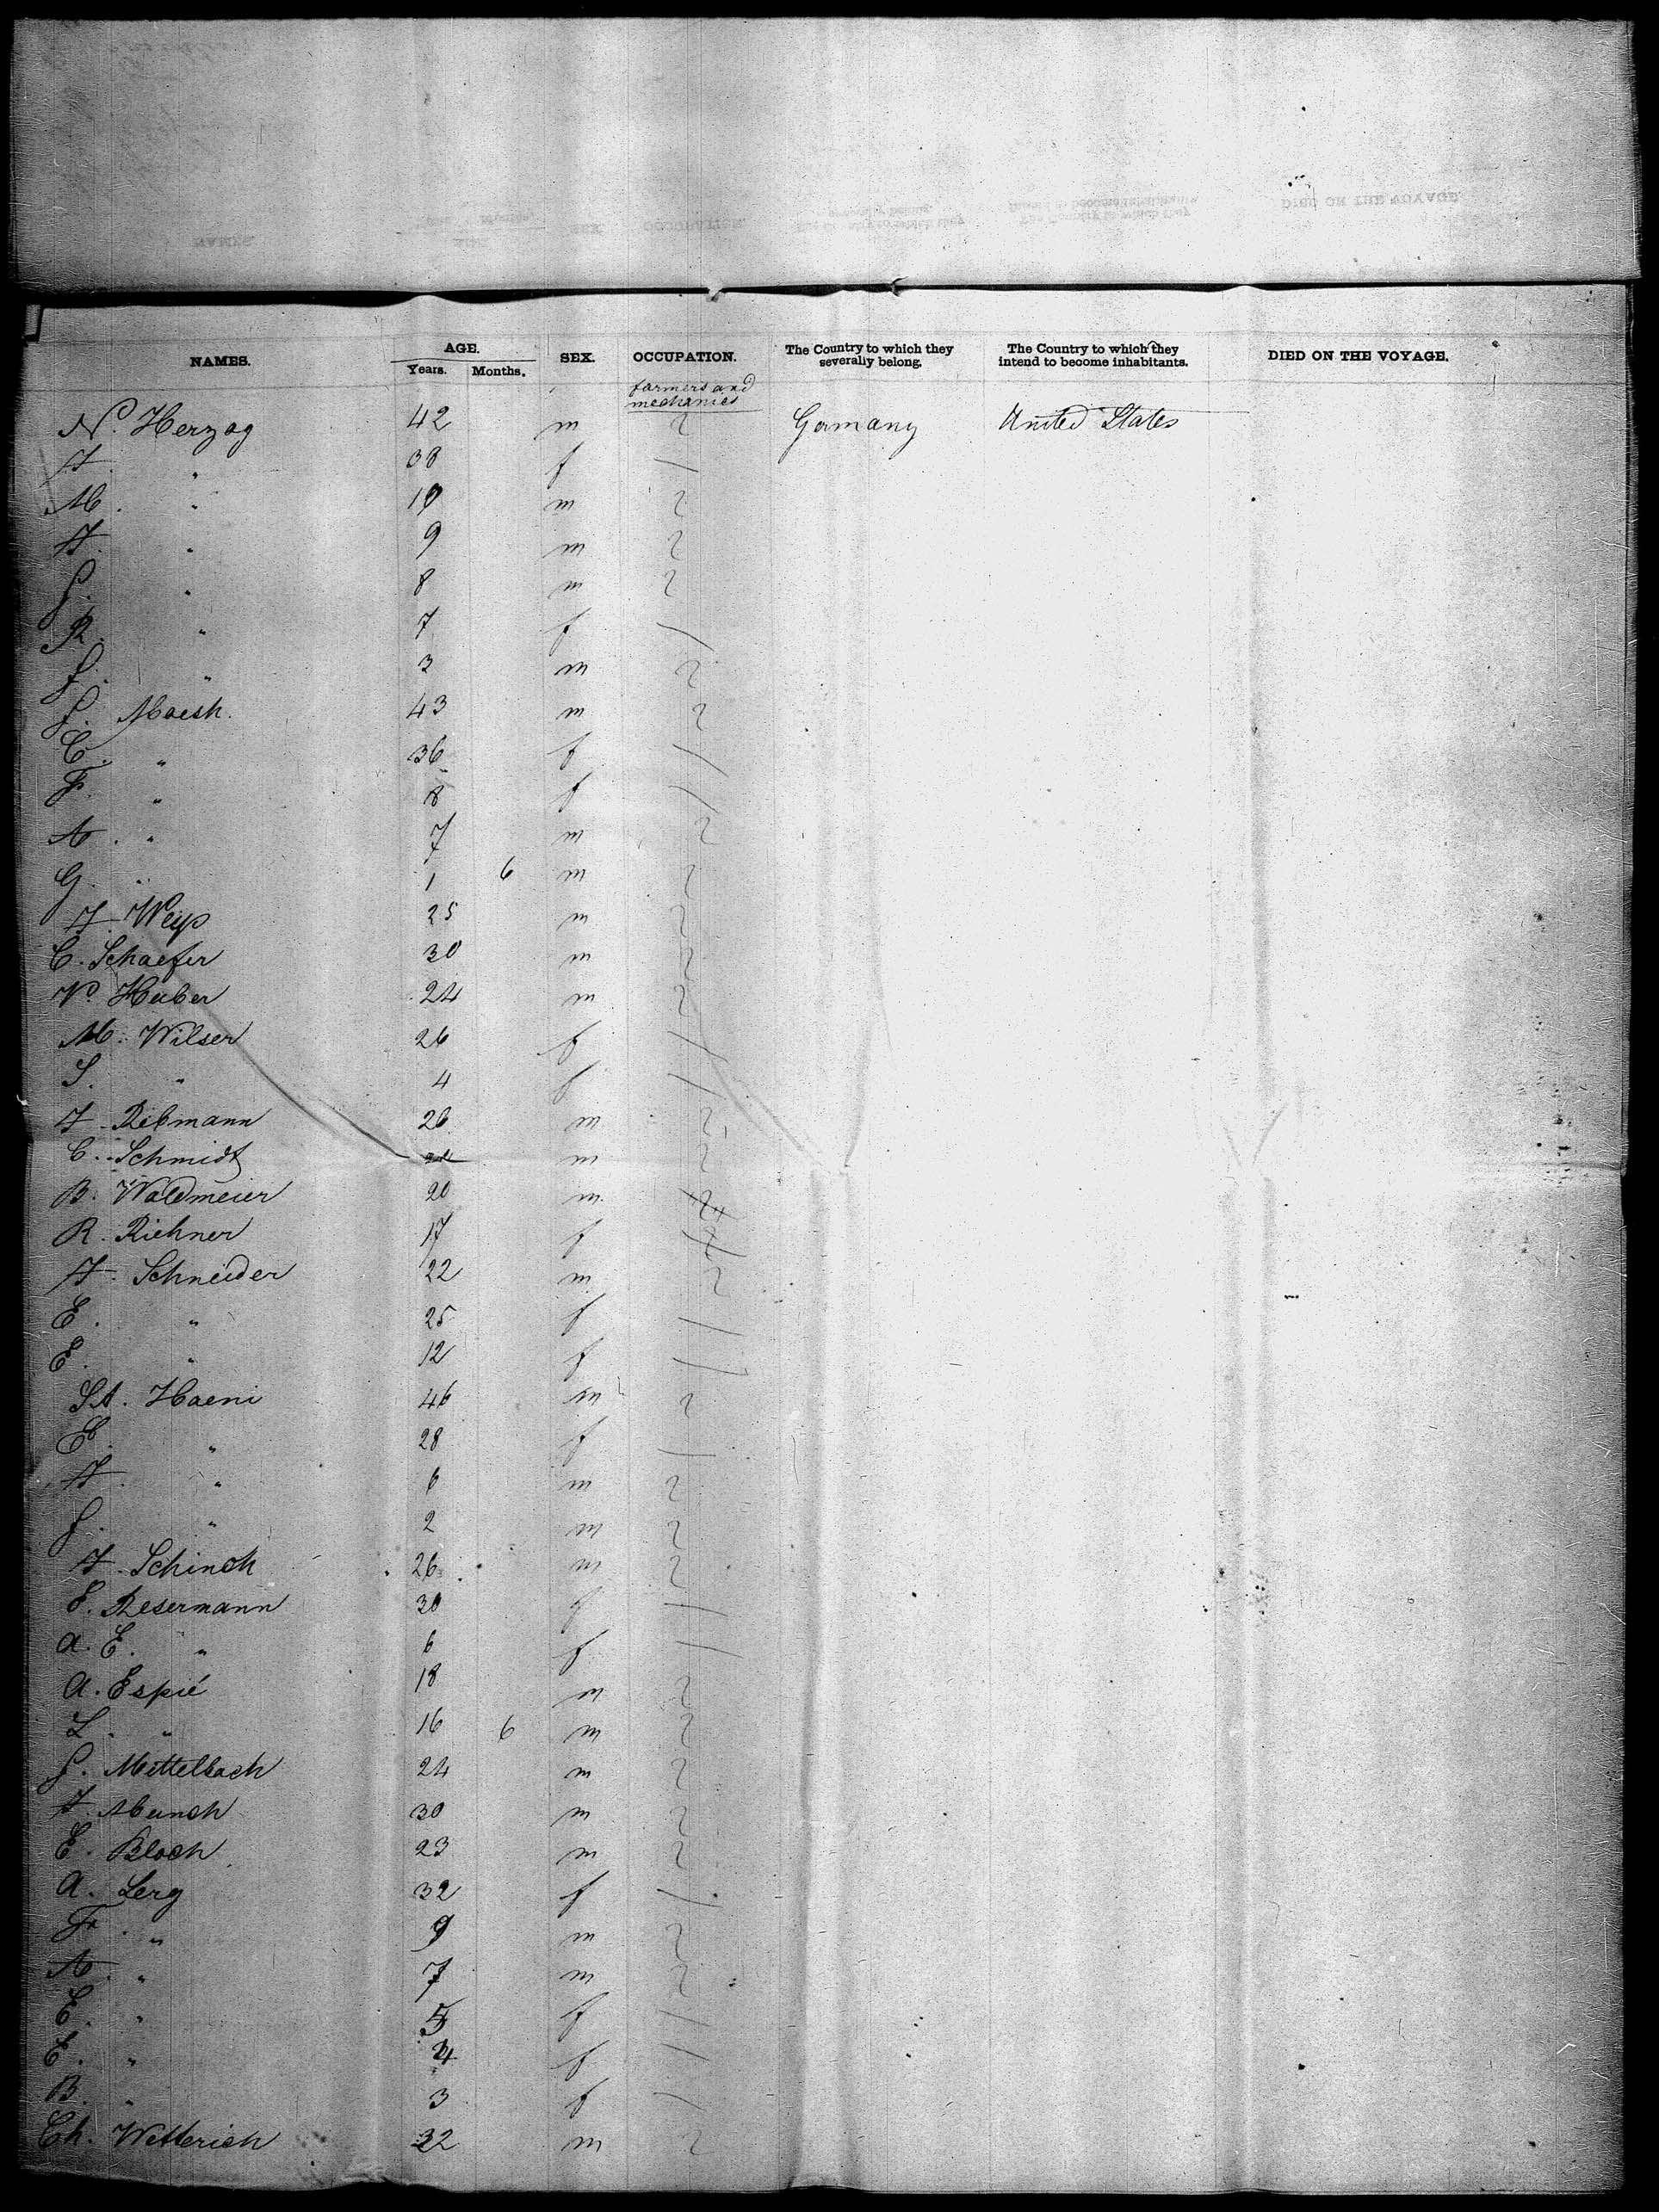 NAMES. AGE. SEX. OCCUPATION. The Country to which they severally belong. The Country to which they intend to become inhabitants. DIED ON THE VOYAGE.
Years. Months.
farmers and mechanics
N. Herzog 42 m Germany United States
" 38 f
M. " 10 m
" 9 m
J. " 8 m
R. " 7 f
J. " 3 m
J. 43 m
C. " 36 f
F. " 8 f
A. " 7 m
G. " 1 6 m
25 m
C. Schaefer 30 m
N. Huber 24 m
M. Wilser 26 f
S. " 4 f
Rebmann 26 m
C. Schmidt m
B. Waldmeier 20 m
R. Richner 17 f
Schneider 22 m
E. " 25 f
E. " 12 f
St. Haeni 46 m
E. " 28 f
" 6 m
J. " 2 m
Schinck 26 m
E. Resermann 30 f
A. E. " 6 f
A. Espié 18 m
L. " 16 6 m
J. Mittelbach 24 m
Munch 30 m
E. Bloch 23 m
A. Lerg 32 f
Fr. " 9 m
A. " 7 m
E. " 5 f
E. " 4 f
B. " 3 f
Ch. Wetterich 32 m